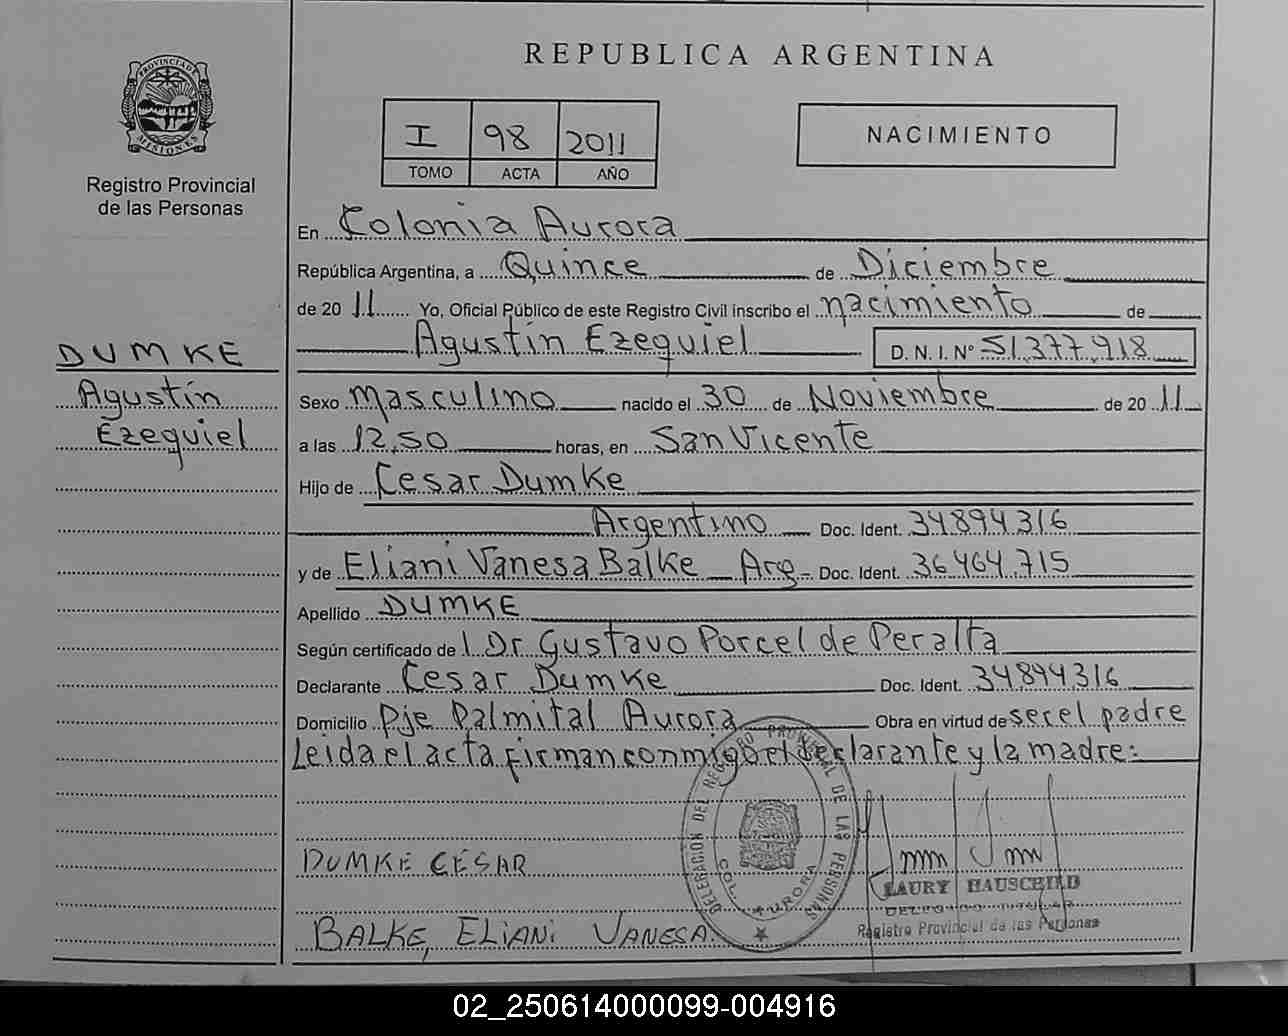 PROVINCIA DE MISIONES
Registro Provincial
de las Personas
DUMKE
Agustín
Ezequiel
REPUBLICA ARGENTINA
I 98 2011
TOMO ACTA AÑO
NACIMIENTO
En Colonia Aurora
República Argentina, a Quince de Diciembre
de 2011 Yo, Oficial Público de este Registro Civil inscribo el nacimiento de
Agustín Ezequiel D. N. I. Nº 51.377.918
Sexo Masculino nacido el 30 de Noviembre de 2011
a las 12,50 horas, en San Vicente
Hijo de Cesar Dumke
Argentino Doc. Ident. 34894316
y de Eliani Vanesa Balke Arg- Doc. Ident. 36464.715
Apellido DUMKE
Según certificado de l Dr Gustavo Porcel de Peralta
Declarante Cesar Dumke Doc. Ident. 34894316
Domicilio Pje Palmital Aurora Obra en virtud de ser el padre
Leida el acta firman conmigo el declarante y la madre:
DELEGACION DEL REGISTRO PROVINCIAL DE LAS PERSONAS
COL. AURORA
DUMKE CÉSAR
LAURY HAUSCHILD
DELEGADO TITULAR
Registro Provincial de las Personas
BALKE, ELIANI VANESA.
02_250614000099-004916